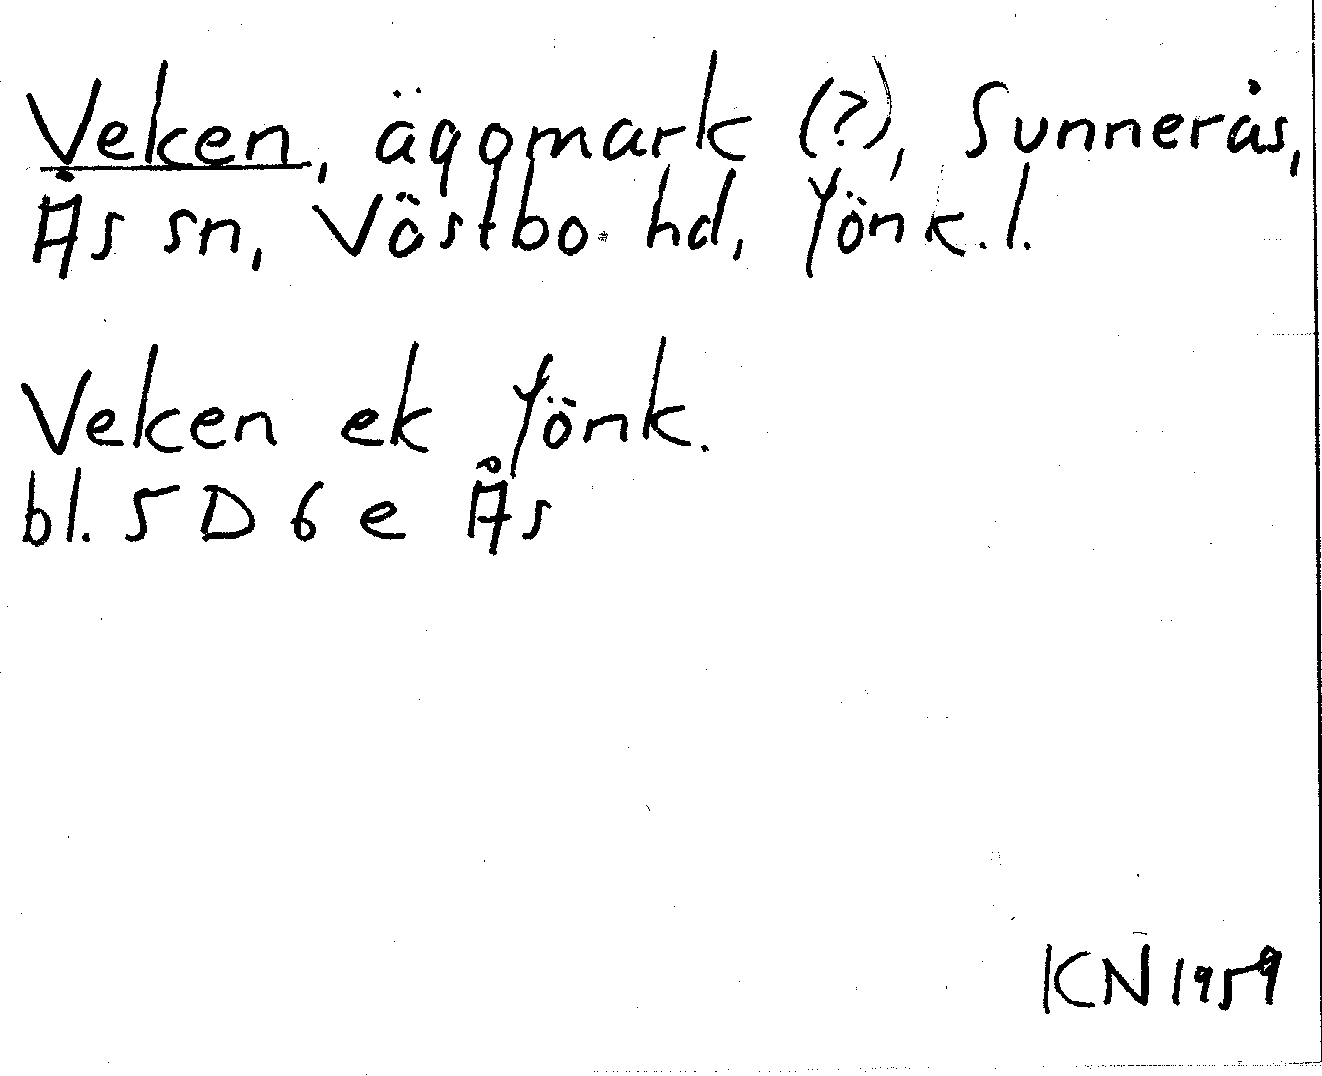 Veken, äggmark (?), Sunnerås,
Ås sn, Västbo hd, Jönk.l.
Veken ek Jönk.
bl. 5 D 6 e Ås
KN 1959